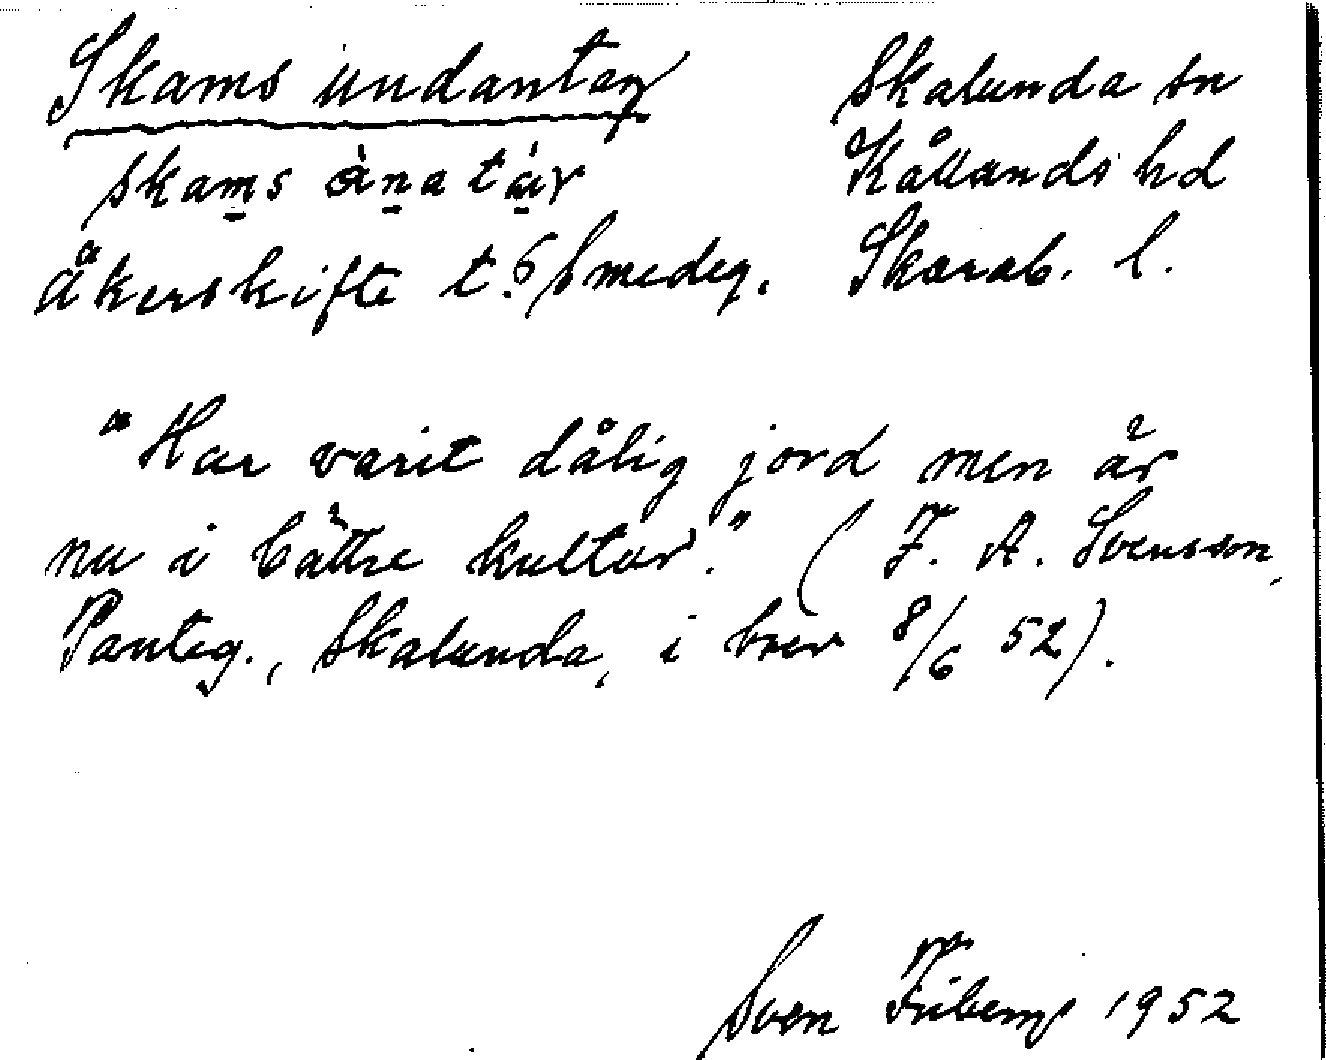 Skams undantag
skams ànatár
åkerskifte t. 6 Smedeg.
Skalunda sn
Kållands hd
Skarab. l.
"Har varit dålig jord men är
nu i bättre kultur." (F. A. Svensson,
Panteg., Skalunda, i brev 8/6 52).
Sven Friberg 1952